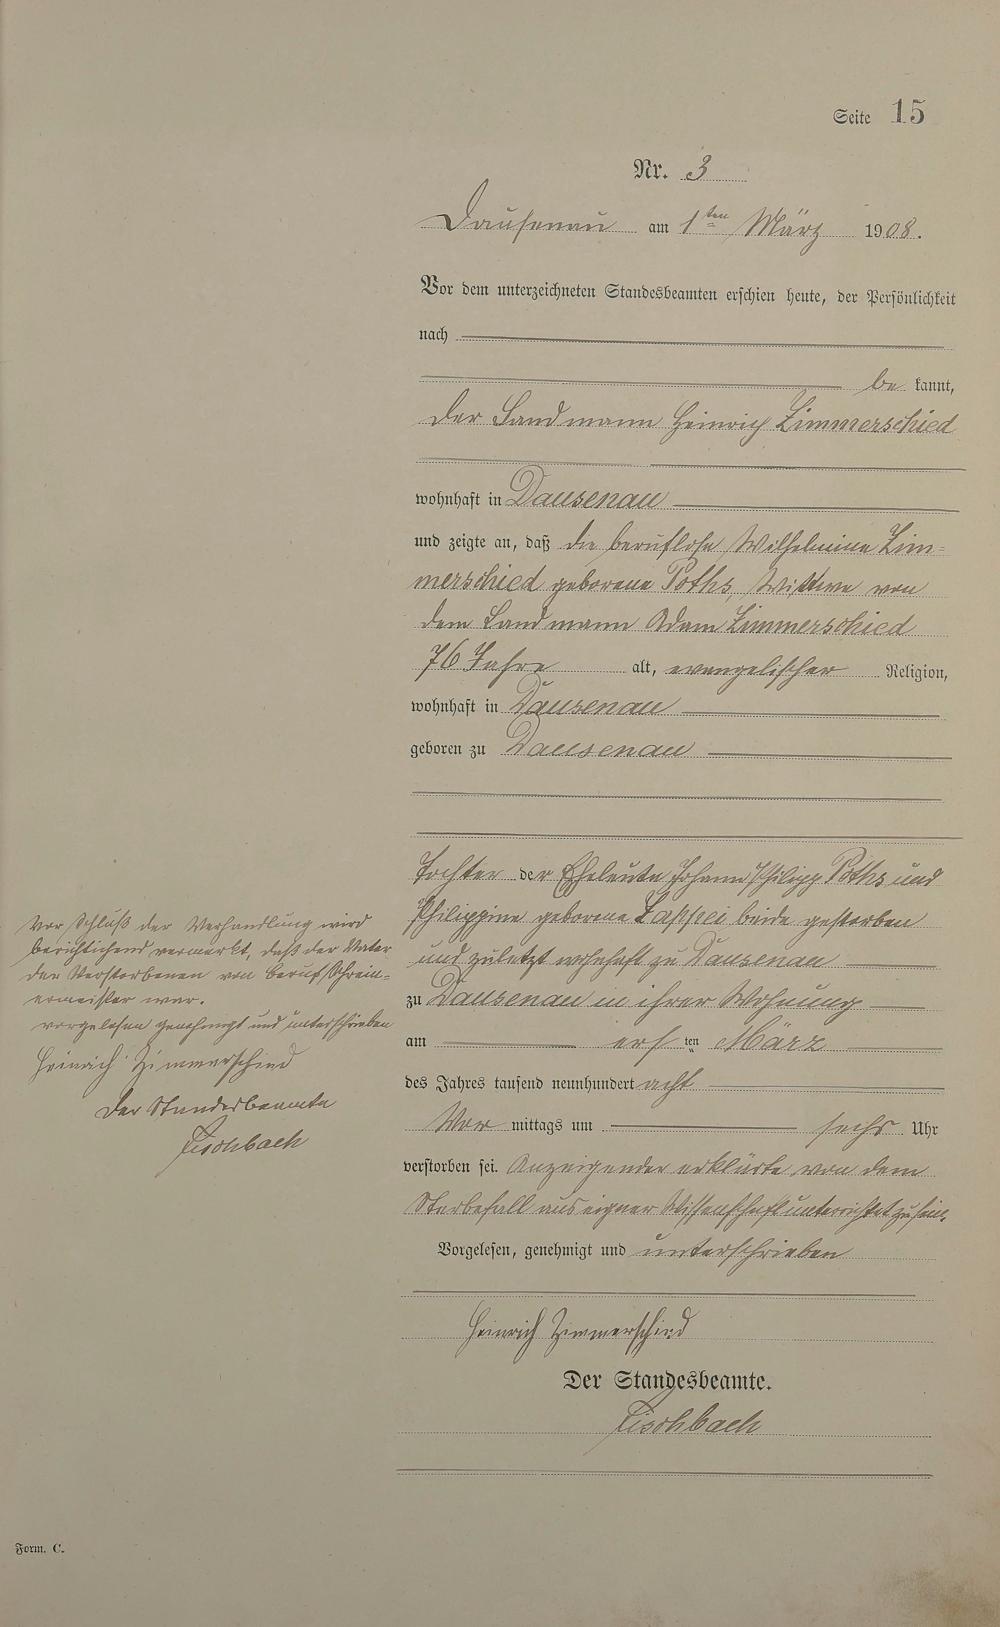 Seite 15
Nr. 3
Dausenau am 1ten März 1908.
Vor dem unterzeichneten Standesbeamten erschien heute, der Persönlichkeit
nach
be kannt,
der Landmann Heinrich Zimmerschied
wohnhaft in Dausenau
und zeigte an, daß die berufslose Wilhelmine Zim-
merschied geborene Poths, Wittwe von
dem Landmann Adam Zimmerschied
76 Jahre alt, evangelischer Religion,
wohnhaft in Dausenau
geboren zu Dausenau
Tochter der Eheleute Johann Philipp Poths und
Philippine geborene Lappei beide gestorben
und zuletzt wohnhaft zu Dausenau
zu Dausenau in ihrer Wohnung
am ersten März
des Jahres tausend neunhundert acht
Vor mittags um sechs Uhr
verstorben sei. Anzeigender erklärte von dem
Sterbefall aus eigner Wissenschaft unterrichtet zu sein.
Vorgelesen, genehmigt und unterschrieben
Heinrich Zimmerschied
Der Standesbeamte.
Fischbach
Vor Schluß der Verhandlung wird
berichtichend vermerkt, daß der Vater
der Verstorbenen von Beruf Schrein-
ermeister war.
vorgelesen genehmigt und unterschrieben
Heinrich Zimmerschied
Der Standesbeamte
Fischbach
Form. C.